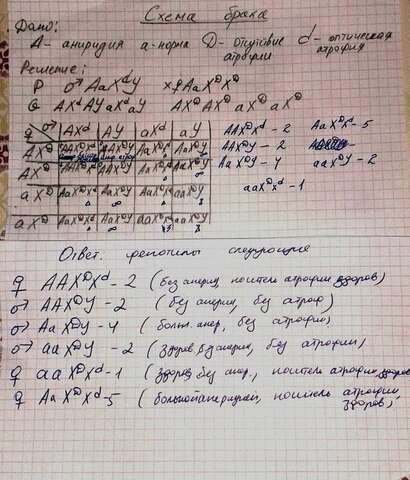 Схема брака
Дано:
А- аниридия а-норма D- отсутствие атрофии d- оптическая атрофия
Решение:
P ♂ AaXᵈY × ♀ AaXᴰXᴰ
G AXᵈ AY aXᵈ aY AXᴰ AXᴰ aXᴰ aXᴰ
♀ ♂ AXᵈ AY aXᵈ aY
AXᴰ AAXᴰXᵈ AAXᴰY AaXᴰXᵈ AaXᴰY
AXᴰ AaXᴰY
aXᴰ AaXᴰXᵈ AaXᴰY aaXᴰY
aXᴰ AaXᴰXᵈ AaXᴰY aaXᴰXᵈ aaXᴰY
AAXᴰXᵈ - 2 AaXᴰXᵈ - 5
AAXᴰY - 2
AaXᴰY - 4 aaXᴰY - 2
aaXᴰXᵈ - 1
Ответ. фенотипы следующие
♀ AAXᴰXᵈ - 2 (без анирид, носитель атрофии здоров)
♂ AAXᴰY - 2 (без анирии, без атроф)
♂ AaXᴰY - 4 (больн. анир, без атрофии,
♂ aaXᴰY - 2 (здоров, без анирии, без атрофии,
♀ aaXᴰXᵈ - 1 (здоров, без анир., носитель атрофии здоров)
♀ AaXᴰXᵈ - 5 (больной аниридией, носитель атрофии, здоров,